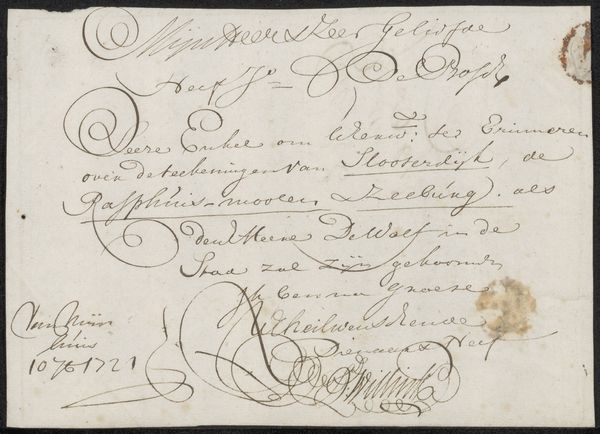 Mijn Heer & Zeer Geliefde
Neef Jo De Bosch
Deese Enkel om UEenw: te Erinneren
over de teekeningen van Slooterdijk, de
Rasphuis-moolen & Zeebúrg. als
den Heere De Wolf in de
Stad zal zijn gekoomen
Ik ben na Groete
UE heilwenschende
Dienaar & Neef
Van mijn
huis
10 1721